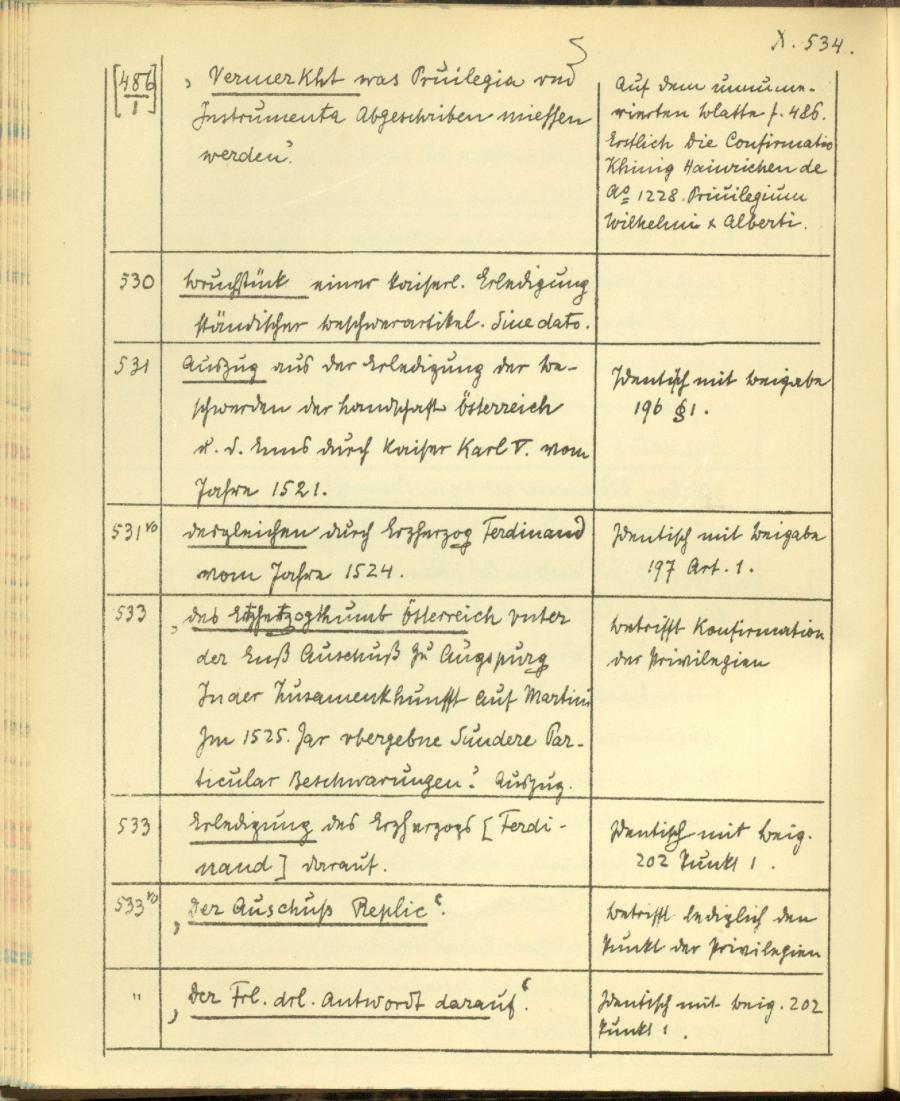 X. 534.
[486/1]
„Vermerkht was Priuilegia vnd
Instrumenta Abgeschriben miessen
werden“.
Auf dem unnume-
rierten Blatte f. 486.
Erstlich Die Confirmatio
Khinig Hainrichen de
Ao 1228. Priuilegium
Wilhelmi & Alberti.
530
Bruchstück einer kaiserl. Erledigung
ständischer Beschwerartikel. Sine dato.
531
Auszug aus der Erledigung der Be-
schwerden der Landschaft Österreich
u. d. Enns durch Kaiser Karl V. vom
Jahre 1521.
Identisch mit Beigabe
196 § 1.
531vo
desgleichen durch Erzherzog Ferdinand
vom Jahre 1524.
Identisch mit Beigabe
197 Art. 1.
533
„des Ertzhertzogthumb Österreich vnter
der Enß Auschuß zu Augspurg
In der Zusamenkhunfft auf Martini
Im 1525. Jar vbergebne Sundere Par-
ticular Beschwarungen“. Auszug.
betrifft Konfirmation
der Privilegien
533
Erledigung des Erzherzogs [Ferdi-
nand] darauf.
Identisch mit Beig.
202 Punkt 1.
533vo
„Der Auschuß Replic“.
betrifft lediglich den
Punkt der Privilegien
"
„Der Frl. drl. Antwordt darauf“.
Identisch mit Beig. 202
Punkt 1.